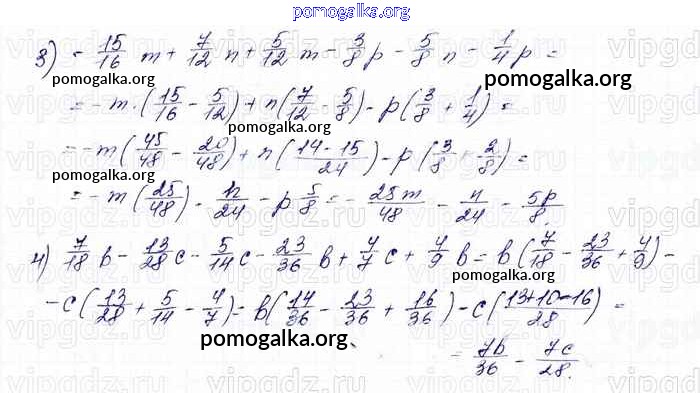 pomogalka.org
3) - 15/16 m + 7/12 n + 5/12 m - 3/8 p - 5/8 n - 1/4 p =
pomogalka.org pomogalka.org
= -m · (15/16 - 5/12) + n (7/12 - 5/8) - p (3/8 + 1/4) =
pomogalka.org
= -m (45/48 - 20/48) + n (14-15/24) - p (3/8 + 2/8) =
pomogalka.org
= -m (25/48) - n/24 - p 5/8 = - 25m/48 - n/24 - 5p/8.
pomogalka.org
4) 7/18 b - 13/28 c - 5/14 c - 23/36 b + 4/7 c + 4/9 b = b (7/18 - 23/36 + 4/9) -
pomogalka.org
- c (13/28 + 5/14 - 4/7) = b (14/36 - 23/36 + 16/36) - c (13+10-16/28) =
pomogalka.org
= 7b/36 - 7c/28.
vipgdz.ru vipgdz.ru vipgdz.ru vipgdz.ru